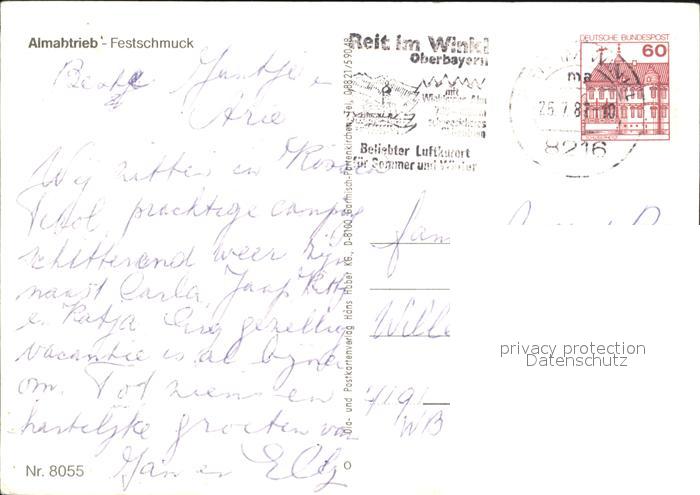 Almabtrieb - Festschmuck
Reit im Winkl
Oberbayern
mit
Beliebter Luftkurort
für Sommer und Winter
DEUTSCHE BUNDESPOST
60
8216
Beste Jantje
Arie
Wij zitten in Kössen
Tirol, prachtige camping
schitterend weer zijn
naast Carla, Jaap
en Katja. Erg gezellig
vacantie is al bijna
om. Tot ziens en
hartelijke groeten van
Jan en Elly
Fam
Wille
WB
Bild- und Postkartenverlag Hans Huber KG., D-8100 Garmisch-Partenkirchen, Tel. 08821/59048
privacy protection
Datenschutz
Nr. 8055